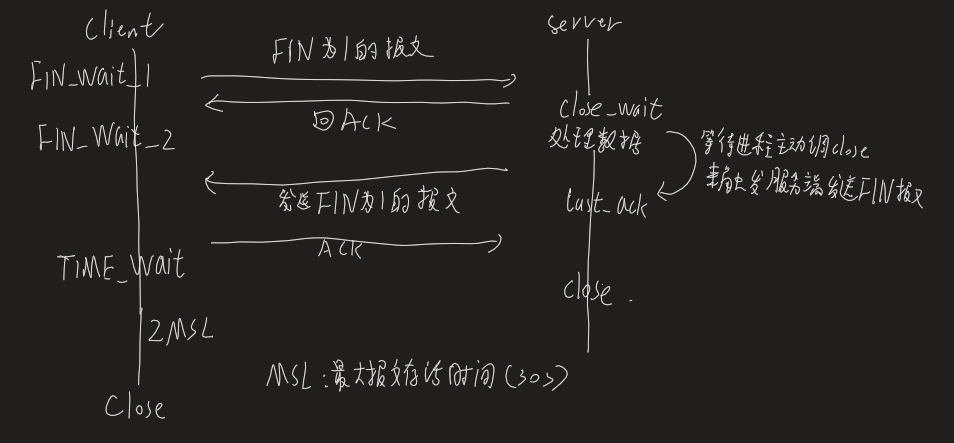 Client
server
FIN为1的报文
FIN_wait_1
close_wait
回ACK
FIN_Wait_2
处理数据
等待进程主动调close
来触发服务端发送FIN报文
发送FIN为1的报文
last_ack
ACK
TIME_Wait
close.
2MSL
MSL:最大报文存活时间(30s)
Close